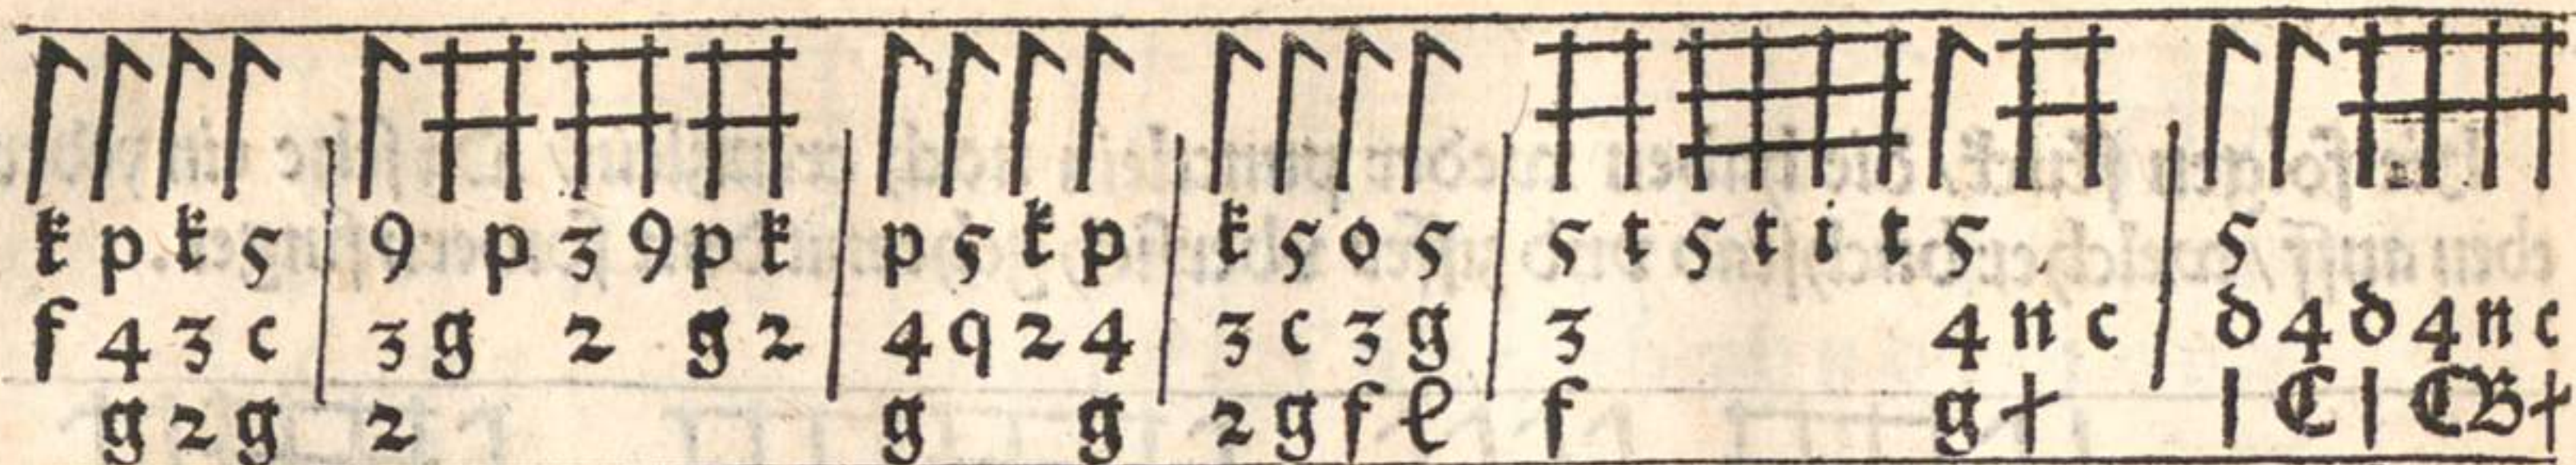 k p k 5 | 9 p 3 9 p k | p 5 k p | k 5 o 5 | 5 t 5 t i t 5 | 5
f 4 3 c | 3 g 2 g 2 | 4 q 2 4 | 3 c 3 g | 3 4 n c | d 4 d 4 n c
g 2 g 2 g g 2 g f l f g † l C l C B †